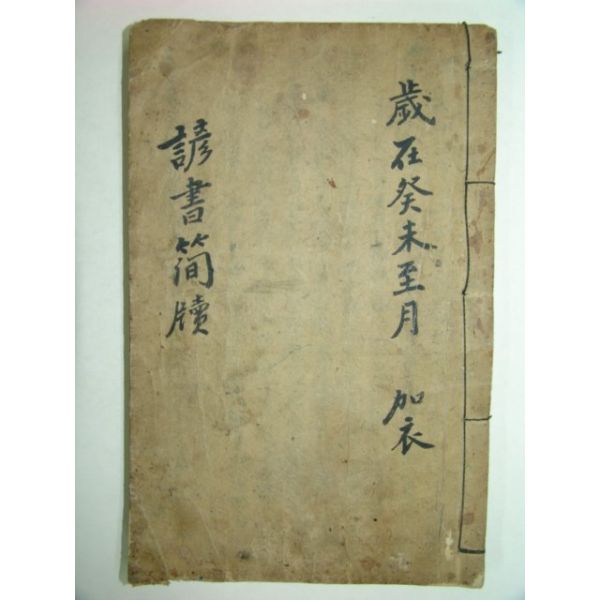 歲在癸未至月 加衣
諺書簡牘